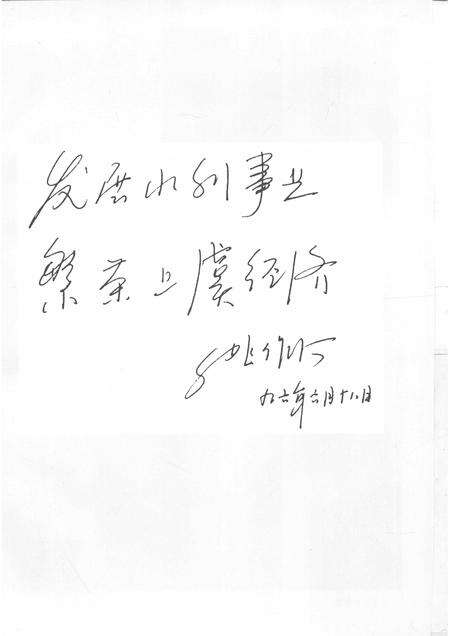 发展水利事业
繁荣上虞经济
九六年六月十八日